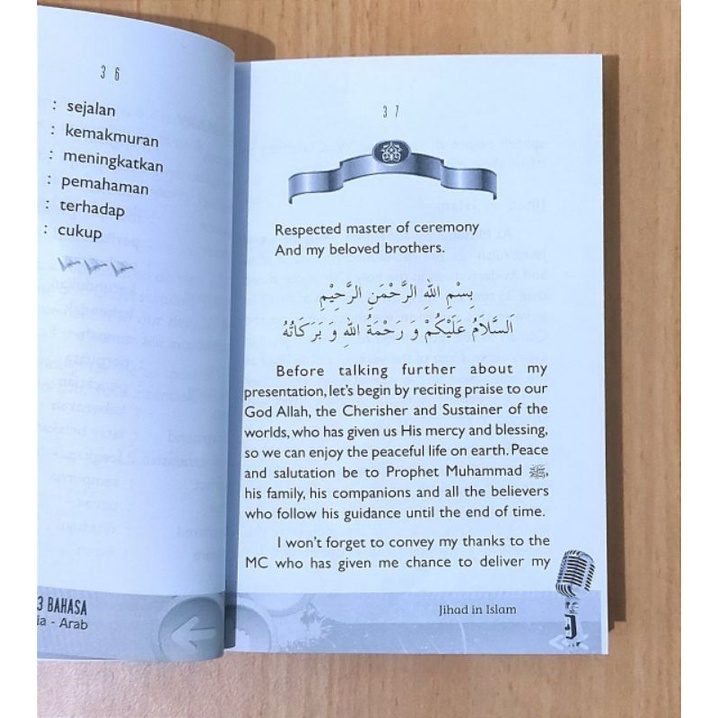 3 6
: sejalan
: kemakmuran
: meningkatkan
: pemahaman
: terhadap
: cukup
3 BAHASA
ia - Arab
3 7
Respected master of ceremony
And my beloved brothers.
بِسْمِ اللهِ الرَّحْمَنِ الرَّحِيْمِ
اَلسَّلَامُ عَلَيْكُمْ وَ رَحْمَةُ اللهِ وَ بَرَكَاتُهُ
Before talking further about my
presentation, let's begin by reciting praise to our
God Allah, the Cherisher and Sustainer of the
worlds, who has given us His mercy and blessing,
so we can enjoy the peaceful life on earth. Peace
and salutation be to Prophet Muhammad ﷺ,
his family, his companions and all the believers
who follow his guidance until the end of time.
I won't forget to convey my thanks to the
MC who has given me chance to deliver my
Jihad in Islam